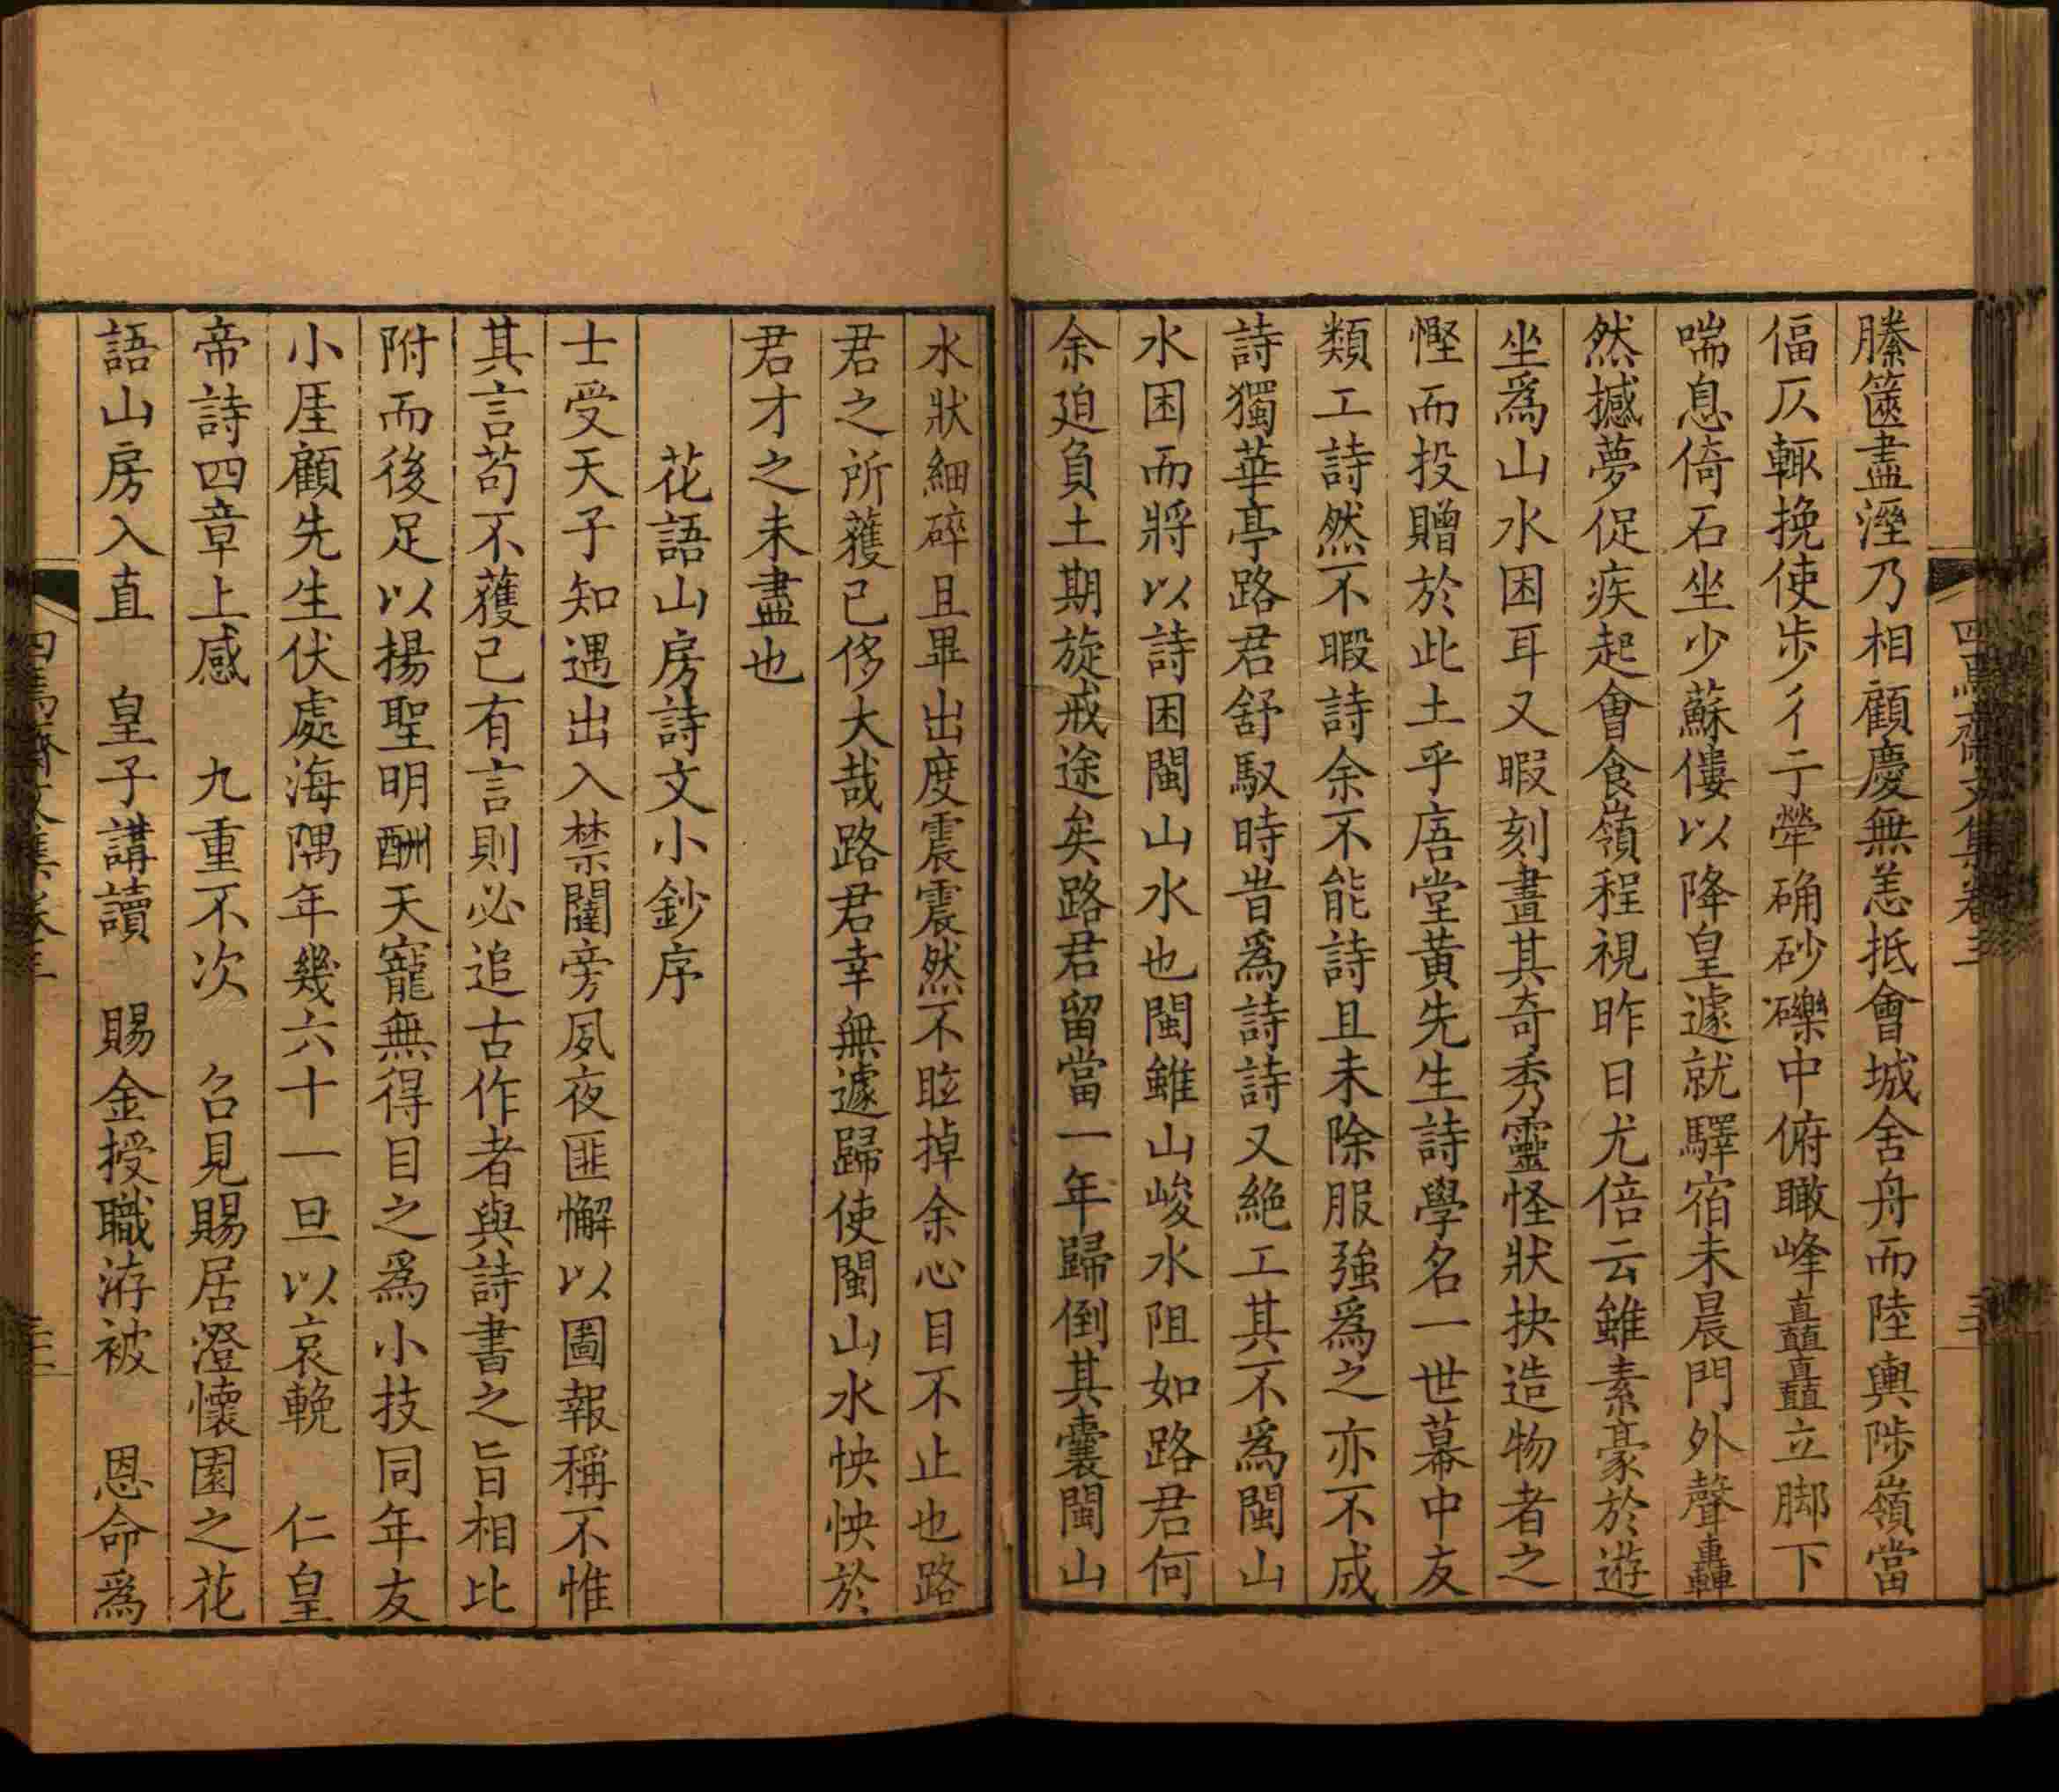 四焉齋文集卷三
三
縢篋盡溼乃相顧慶無恙抵會城舍舟而陸輿陟嶺當
偪仄輒挽使步彳亍犖确砂礫中俯瞰峰矗矗立脚下
喘息倚石坐少蘇僂以降皇遽就驛宿未晨門外聲轟
然撼夢促疾起會食嶺程視昨日尤倍云雖素豪於遊
坐爲山水困耳又暇刻畫其奇秀靈怪狀抉造物者之
慳而投贈於此土乎唐堂黃先生詩學名一世幕中友
類工詩然不暇詩余不能詩且未除服強爲之亦不成
詩獨華亭路君舒馭時甞爲詩詩又絶工其不爲閩山
水困而將以詩困閩山水也閩雖山峻水阻如路君何
余迫負土期旋戒途矣路君留當一年歸倒其囊閩山
水狀細碎且畢出度震震然不眩掉余心目不止也路
君之所獲已侈大哉路君幸無遽歸使閩山水怏怏於
君才之未盡也
花語山房詩文小鈔序
士受天子知遇出入禁闥旁夙夜匪懈以圖報稱不惟
其言苟不獲已有言則必追古作者與詩書之旨相比
附而後足以揚聖明酬天寵無得目之爲小技同年友
小厓顧先生伏處海隅年幾六十一旦以哀輓　仁皇
帝詩四章上感　九重不次　召見賜居澄懷園之花
語山房入直　皇子講讀　賜金授職洊被　恩命爲
四焉齋文集卷三